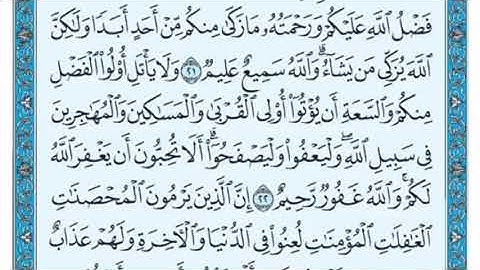 فَضْلُ ٱللَّهِ عَلَيْكُمْ وَرَحْمَتُهُۥ مَا زَكَىٰ مِنكُم مِّنْ أَحَدٍ أَبَدًا وَلَٰكِنَّ
ٱللَّهَ يُزَكِّى مَن يَشَآءُ ۗ وَٱللَّهُ سَمِيعٌ عَلِيمٌ ٢١ وَلَا يَأْتَلِ أُو۟لُوا۟ ٱلْفَضْلِ
مِنكُمْ وَٱلسَّعَةِ أَن يُؤْتُوٓا۟ أُو۟لِى ٱلْقُرْبَىٰ وَٱلْمَسَٰكِينَ وَٱلْمُهَٰجِرِينَ
فِى سَبِيلِ ٱللَّهِ ۖ وَلْيَعْفُوا۟ وَلْيَصْفَحُوٓا۟ ۗ أَلَا تُحِبُّونَ أَن يَغْفِرَ ٱللَّهُ
لَكُمْ ۗ وَٱللَّهُ غَفُورٌ رَّحِيمٌ ٢٢ إِنَّ ٱلَّذِينَ يَرْمُونَ ٱلْمُحْصَنَٰتِ
ٱلْغَٰفِلَٰتِ ٱلْمُؤْمِنَٰتِ لُعِنُوا۟ فِى ٱلدُّنْيَا وَٱلْءَاخِرَةِ وَلَهُمْ عَذَابٌ